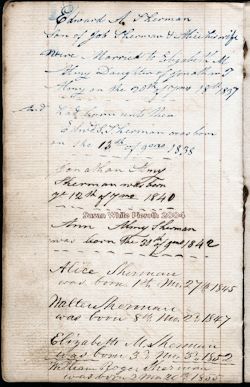 Edward A. Sherman
Son of Job Sherman & Alice his wife
Were Married to Elizabeth M
Almy Daughter of Jonathan
Almy on the of 1837
And had born unto them
Sherman was born
on the 13th of 1838
Jonathan Almy
Sherman was born
ye 12th of 7mo 1840
Susan White Pieroth 2004
Ann Almy Sherman
was born the of 9mo 1842
Alice Sherman
was born 1th Mo. 27th 1845
Walter Sherman
was born 8th Mo. 2d 1847
Elizabeth M. Sherman
was born 3d Mo. 3d 1852
William Roger Sherman
was born 1855